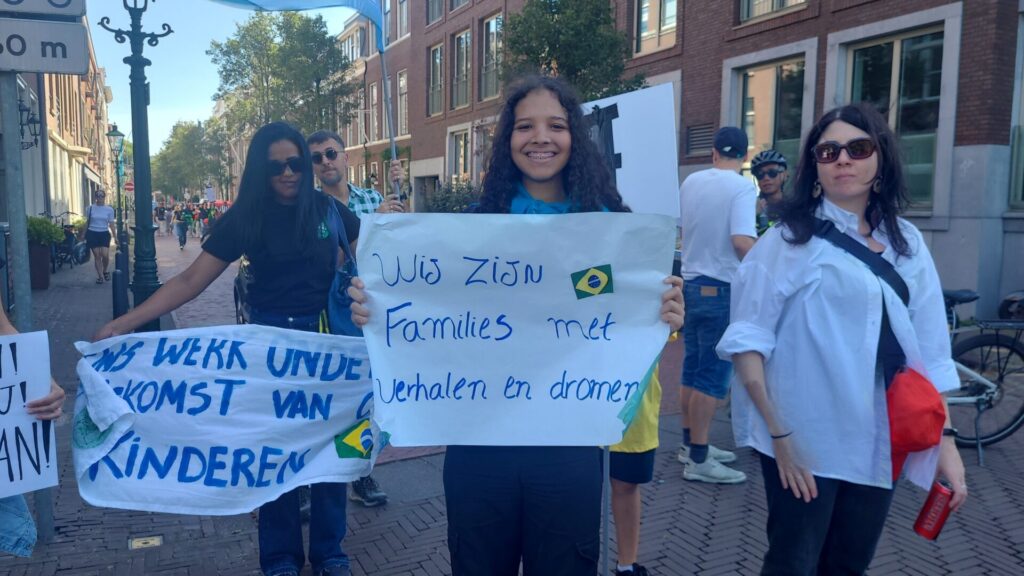 50 m
Wij Zijn
Families met
verhalen en dromen
NS WERK ONDE
KOMST VAN
KINDEREN
!
J!
AN!!